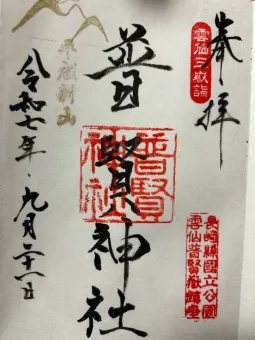 奉拝
雲仙三嶽詣
普賢神社
普賢神社
長崎縣國立公園
雲仙普賢嶽鎮座
平成新山
令和七年九月二十一日